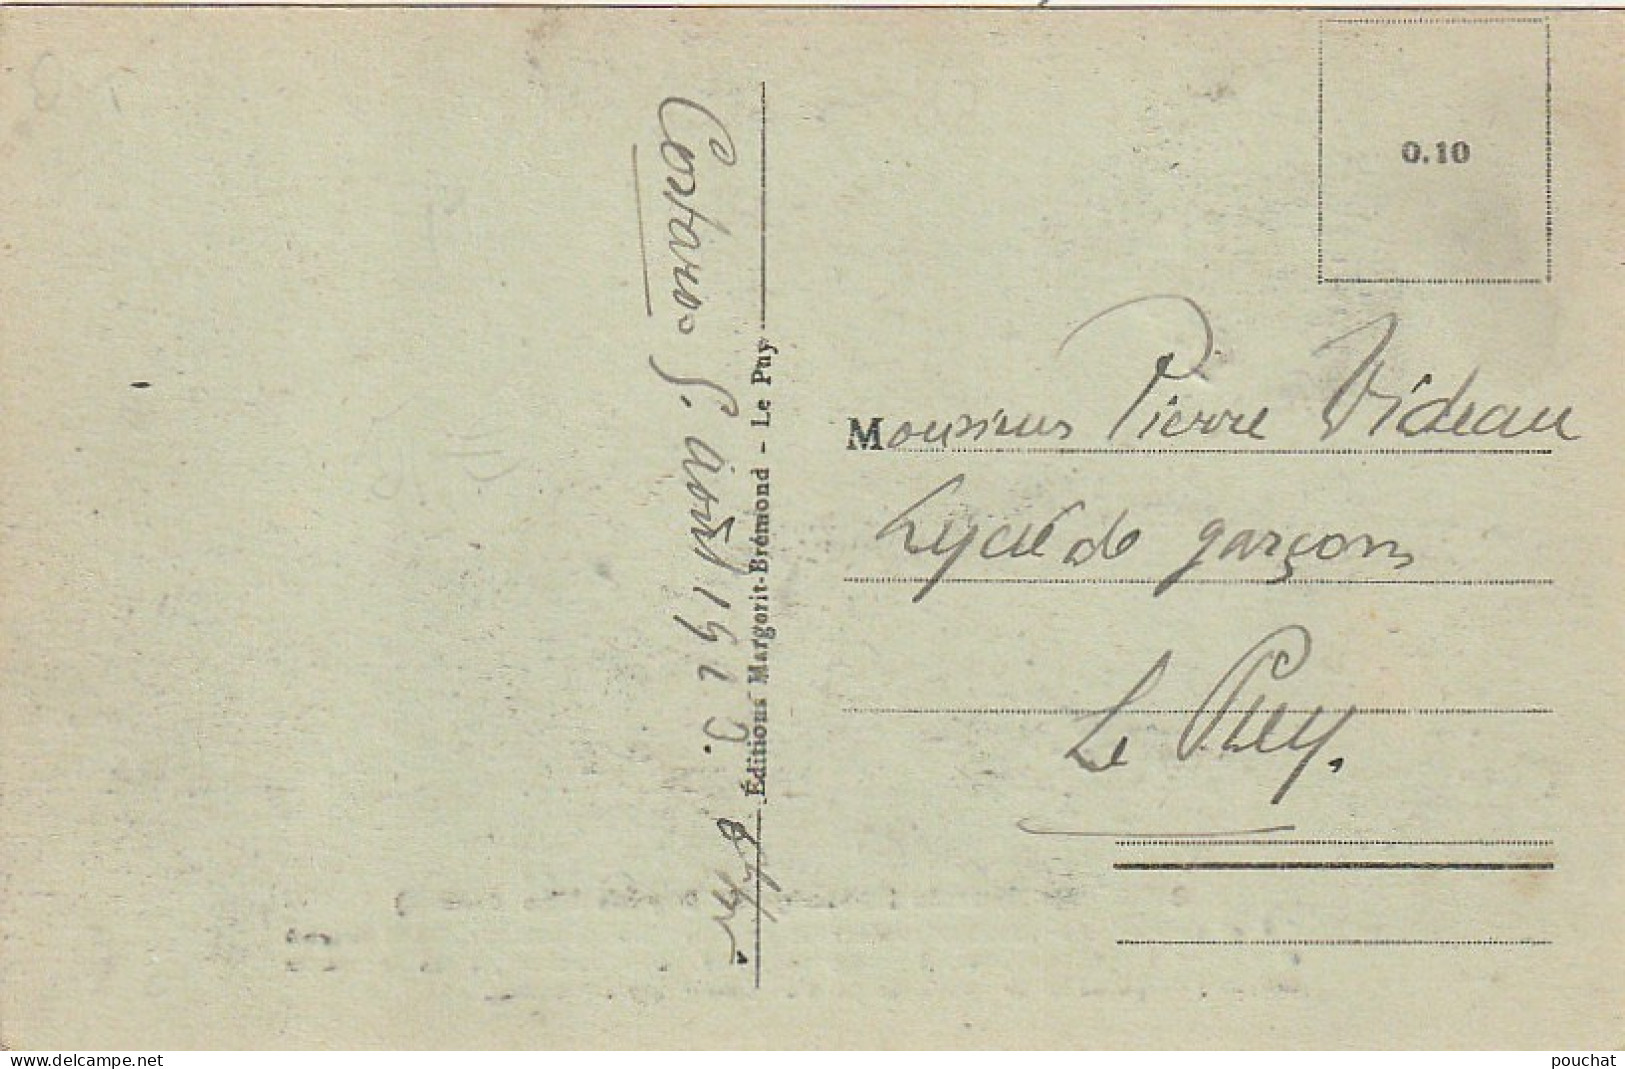 Costaros 5. août 1920.
Éditions Margerit-Brémond - Le Puy
0.10
Monsieur Pierre Videau
Lycée de garçons
Le Puy.
www.delcampe.net
pouchat